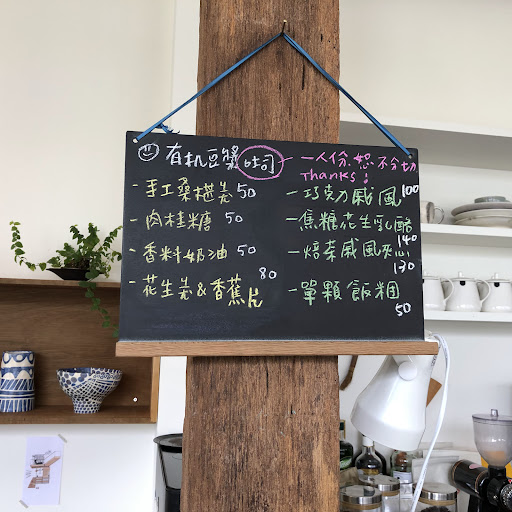 有机豆漿吐司
一人份,恕不分切
Thanks!
手工桑椹羌 50
肉桂糖 50
香料奶油 50
花生羌&香蕉片 80
巧克力戚風 100
焦糖花生乳酪 140
焙茶戚風夾心 130
單顆飯糰 50